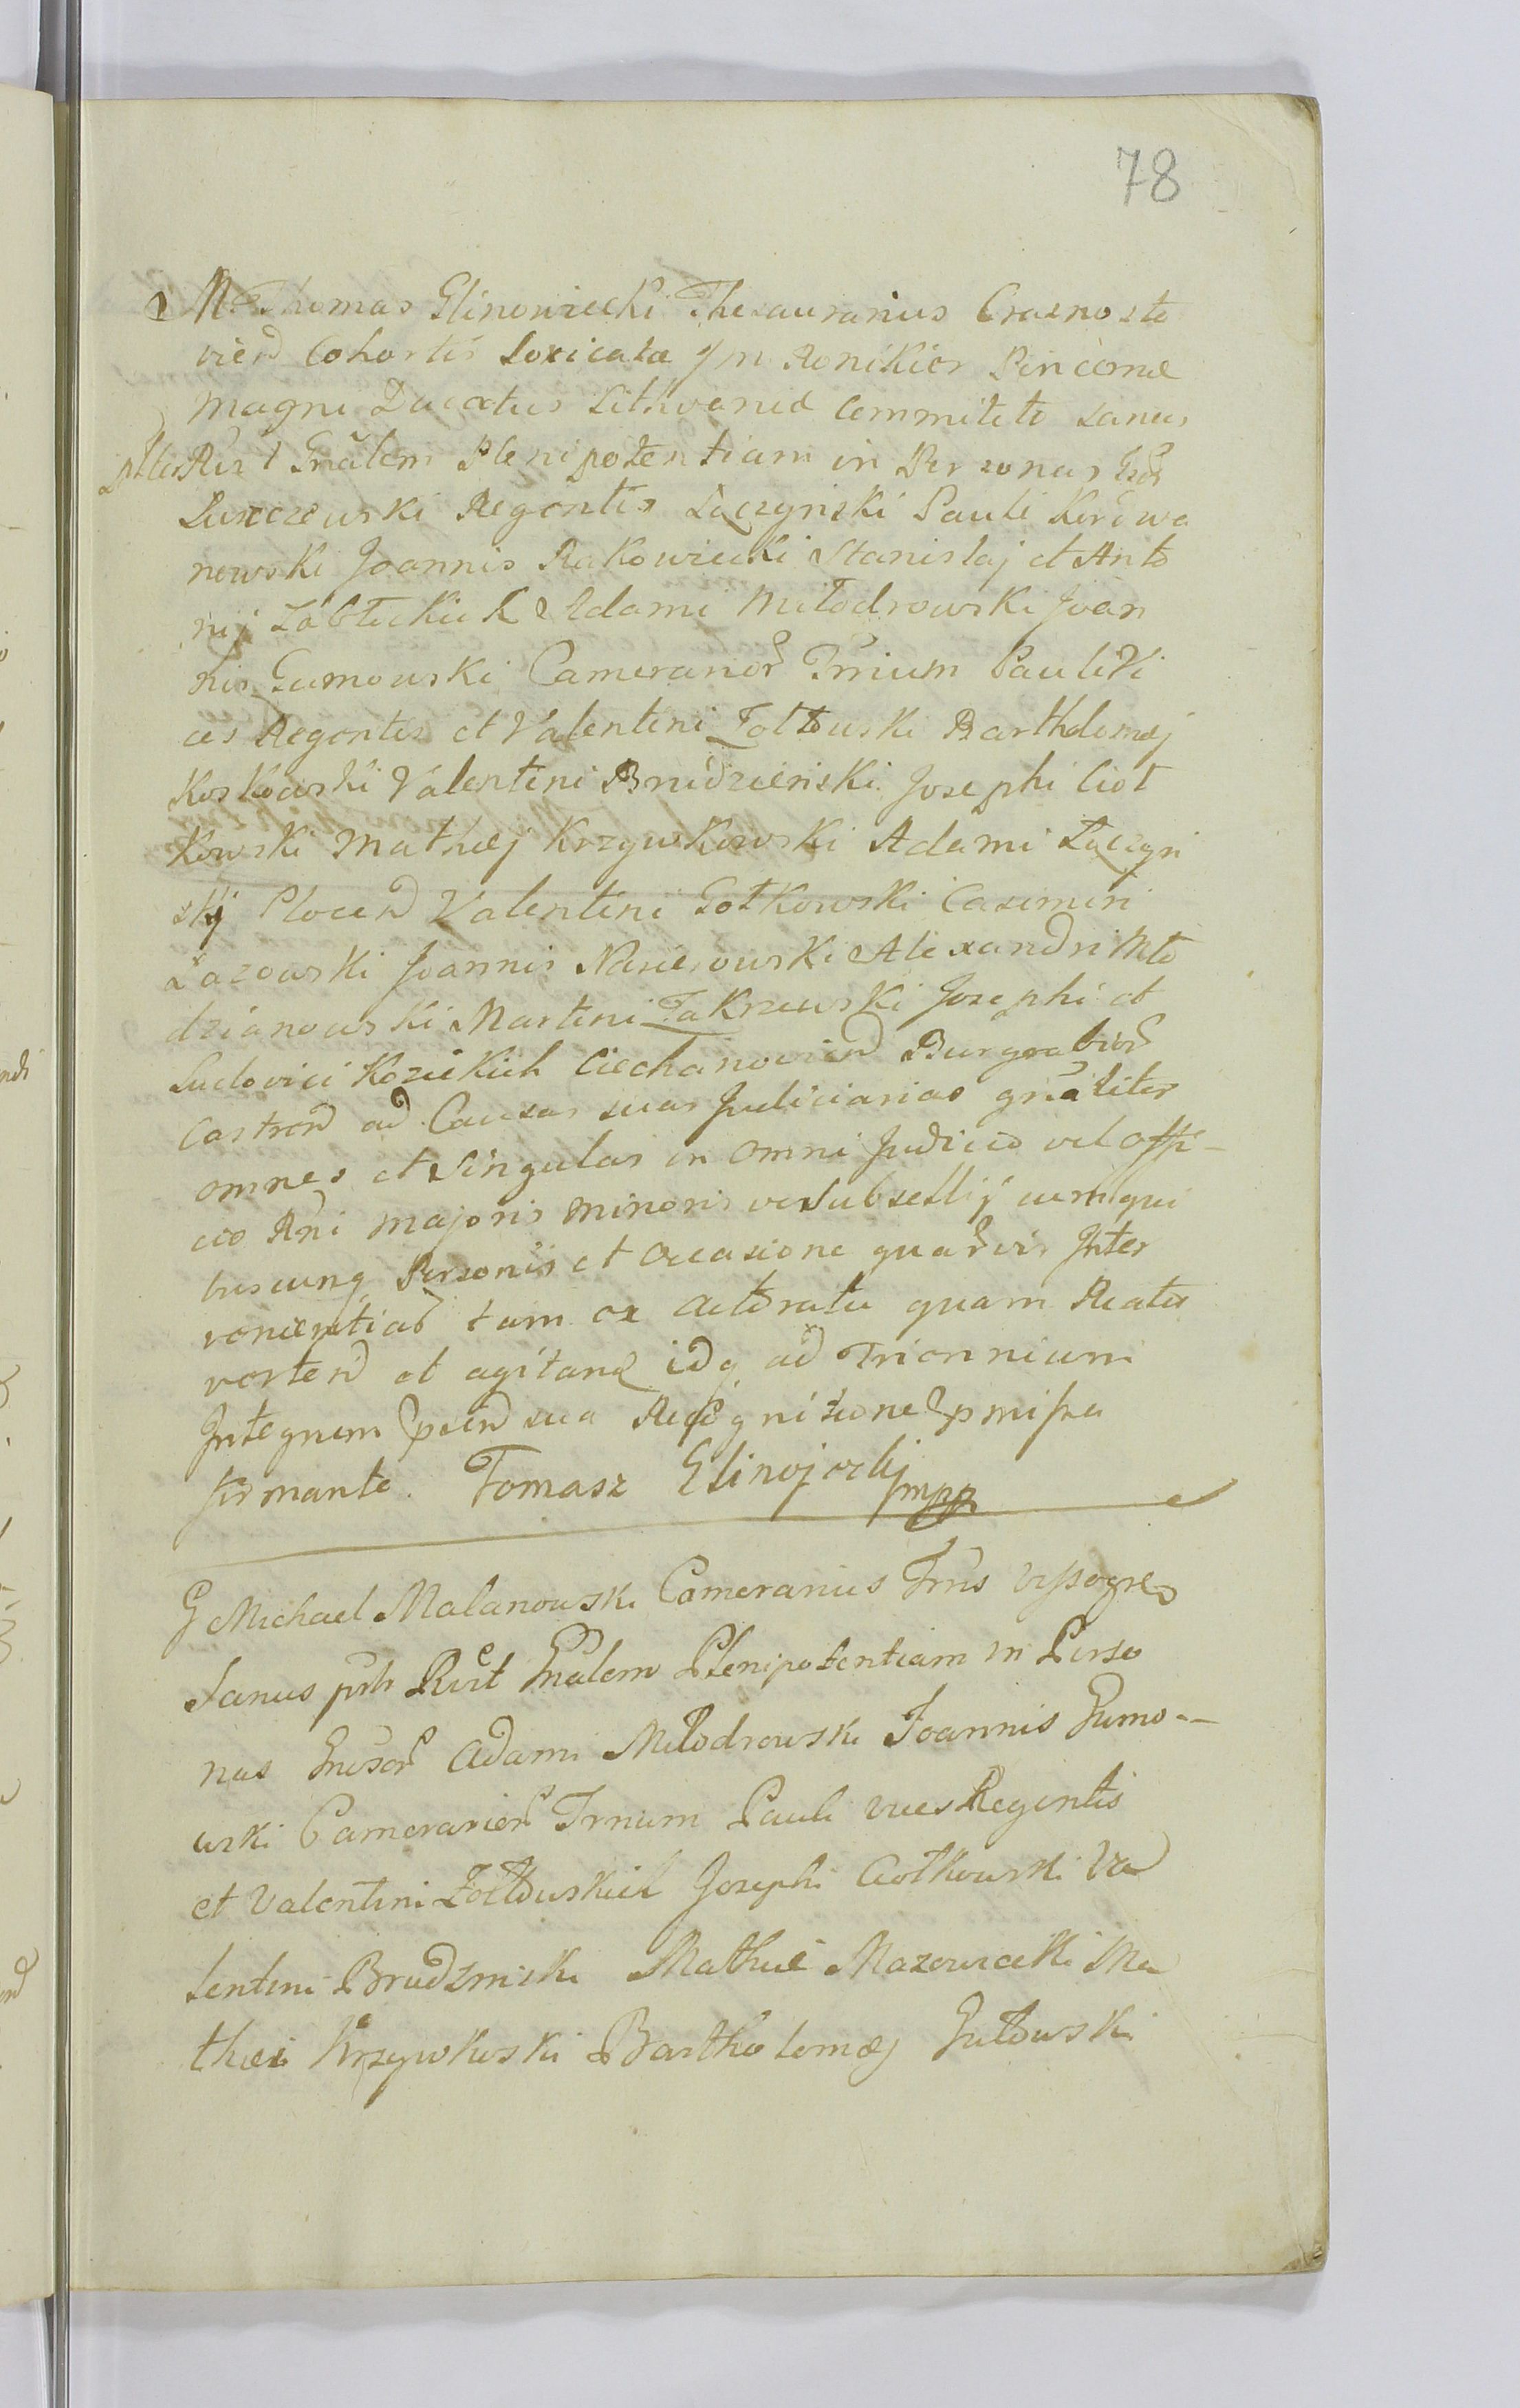 78
M. Thomas Glinowiecki Thesaurarius Crasnosta
vien Cohortis Loricatæ Jm Ronikier Pincernæ
Magni Ducatus Lithvaniæ Committito Sanus
pttes Rert Gnalem Plenipotentiam in Personas
Regentis Łączynski Pauli Karwa
nowski Joannis Rakowiecki Stanislaj et Anto
nij Żabłickich Adami Miłodrowski Joan
nis Gumowski Camerarior Trrium Pauli Vi
ces Regentis et Valentini Żółtowski Bartholomej
Koskowski Valentini Brudzienski Josephi Ciot
kowski Mathæj Krzywkowski Adami Łączyn
skij Plocen Valentini Gotkowski Casimiri
Łazowski Joannis Nasierowski Alexandri Mło
dzianowski Martini Zakrzewski Josephi et
Ludovici Kozickich Ciechanovien Burgrabior
Castren ad Causas suas Judiciarias gnaliter
omnes et singulas in omni Judicio vel Offi-
cio Rni majoris minoris ve Subsellij cum qui
buscunq Personis et occasione quarvis Inter
venientiar tam ex actoratu quam Reatu
verten et agitand idq ad Triennium
Integrum psen sua Recognitione pmissa
firmante. Tomasz Glinojecki mpp
G Michael Malanowski Camerarius Trris Vyssogre
Sanus ptt Rert Gnalem Plenipotentiam in Perso
nas Gnesor Adami Milodrowski Joannis Gumo-
wski Camerarior Trrium Pauli vices Regentis
et Valentini Żołtowskich Josephi Ciotkowski Va
lentini Brudzinski Mathei Mazowiecki Ma
thei Krzywkoski Bartholomæj Gutowski